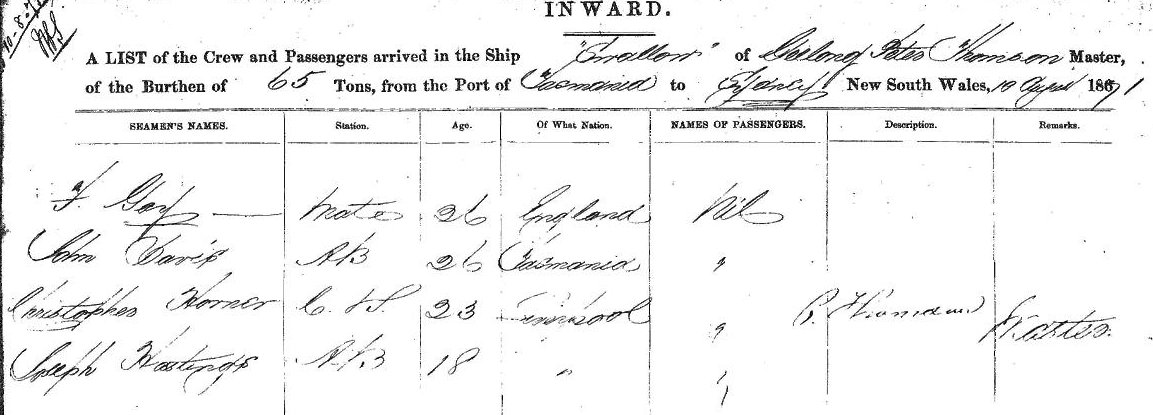 INWARD.
A LIST of the Crew and Passengers arrived in the Ship "Swallow" of Geelong Peter Thomson Master,
of the Burthen of 65 Tons, from the Port of Tasmania to Sydney New South Wales, 10 August 1871
SEAMEN'S NAMES. Station. Age. Of What Nation. NAMES OF PASSENGERS. Description. Remarks.
F. Gay — Mate 26 England Nil
John Davis AB 26 Tasmania "
Christopher Horner C. & S. 23 Liverpool " P. Thomson Master.
Joseph Hastings AB 18 " "